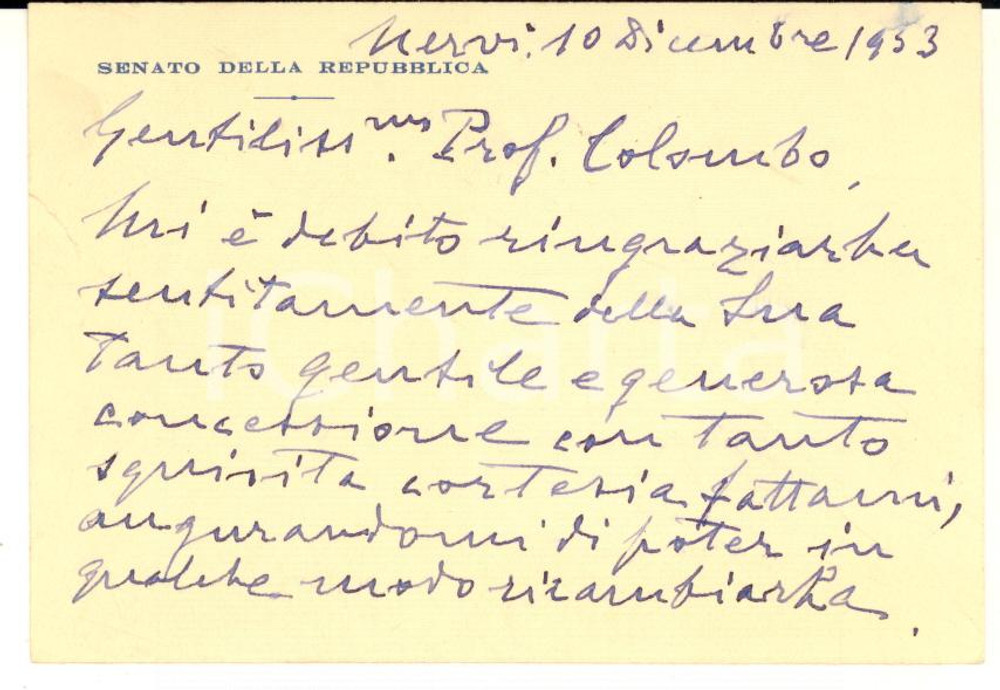 Nervi, 10 Dicembre 1953
SENATO DELLA REPUBBLICA
Gentiliss.mo Prof. Colombo,
Mi è debito ringraziarLa
sentitamente della Sua
tanto gentile e generosa
concessione con tanto
squisita cortesia fattami,
augurandomi di poter in
qualche modo ricambiarLa.
iCharta